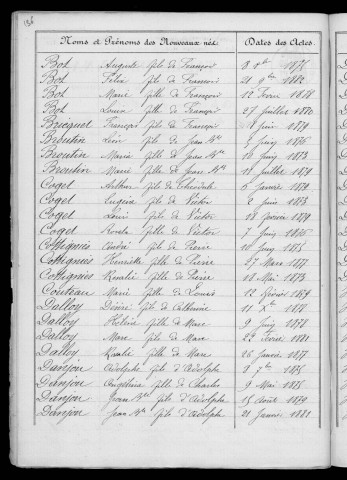 Noms et Prénoms des Nouveaux nés. Dates des Actes.
Bot Auguste fils de François 8 1875
Bot fils de François 21 9bre 1882
Bot Marie fille de François 12 Février 1878
Bot Louis fils de François 27 Juillet 1880
Bricquet François fils de François Juin 1879
Broutin Léon fils de Jean Bte Juin 1876
Broutin Marie fille de Jean Bte 16 Juin 1873
Broutin Marie fille de Jean Bte 18 Juillet 1879
Coget Arthur fils de Théodule 6 Janvier 1879
Coget Eugène fils de Victor 2 Juin 1873
Coget Louis fils de Victor 18 Février 1879
Coget fille de Victor 7 Juin 1876
Cottignies André fils de Pierre 10 Juin 1875
Cottignies Henriette fille de Pierre 27 Mars 1877
Cottignies fille de Pierre 18 Mai 1873
Couteau Marie fille de Louis 12 Février 1874
Dalloy Désiré fils de Catherine 11 Xbre 1878
Dalloy Hélène fille de Marc 9 Juin 1878
Dalloy Marc fils de Marc 22 Février 1881
Dalloy fille de Marc 26 Janvier 1877
Danjou Adolphe fils d'Adolphe 9 7bre 1875
Danjou Angéline fille de Charles 9 Mai 1875
Danjou Jean Bte fils d'Adolphe 15 Août 1879
Danjou Jean Bte fils d'Adolphe 21 Janvier 1881